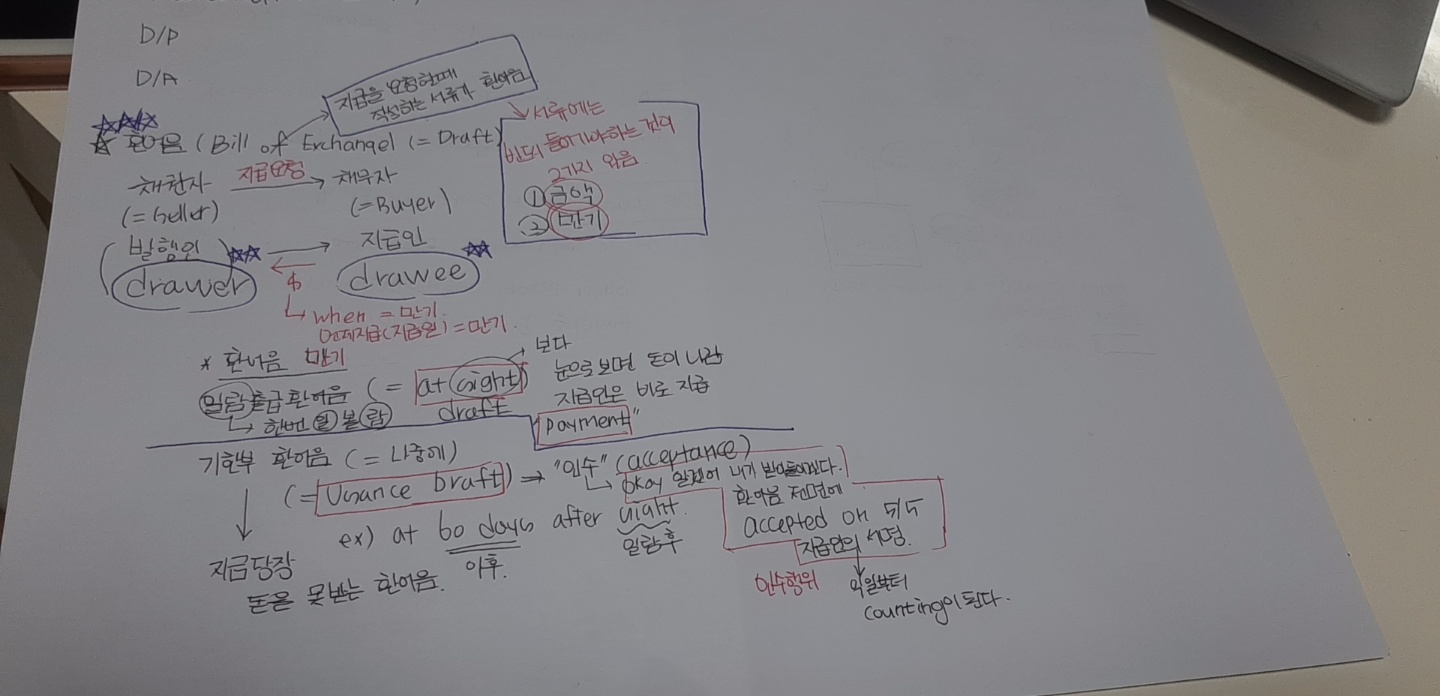 D/P
D/A
지급을 요청할때
작성하는 서류가 환어음
환어음 (Bill of Exchangel (= Draft)
서류에는
반드시 들어가야하는 것이
2가지 있음
① 금액
② 만기
채권자 지급요청 → 채무자
(= Seller) (= Buyer)
발행인 → 지급인
drawer $ drawee
when = 만기.
언제지급(지급일) = 만기.
* 환어음 만기
일람출급 환어음 (= at sight)
draft
→ 보다
눈으로 보면 돈이 나감
지급인은 바로 지급
payment"
↳ 한번 일 볼 람
기한부 환어음 (= 나중에)
(= Usance Draft) → "인수" (acceptance)
↳ okay 일단어 내가 받아들이겠다.
ex) at 60 days after sight.
이후. 일람후
환어음 전면에
accepted on 5/5
지급인의 서명.
인수행위
익일부터
counting이 된다.
지급당장
돈을 못받는 환어음.